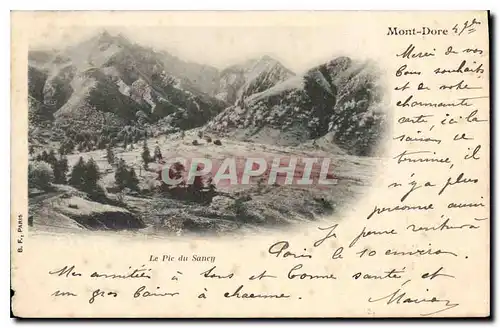 Mont-Dore 4 7bre
Merci de vos
bons souhaits
et de votre
charmante
carte ici la
saison se
termine, il
n'y a plus
personne aussi
je pense rentrer à
Paris le 10 environ
Mes amitiés à tous et bonne santé et
un gros baiser à chacune.
Le Pic du Sancy
B. F., PARIS
CARTE PHARE